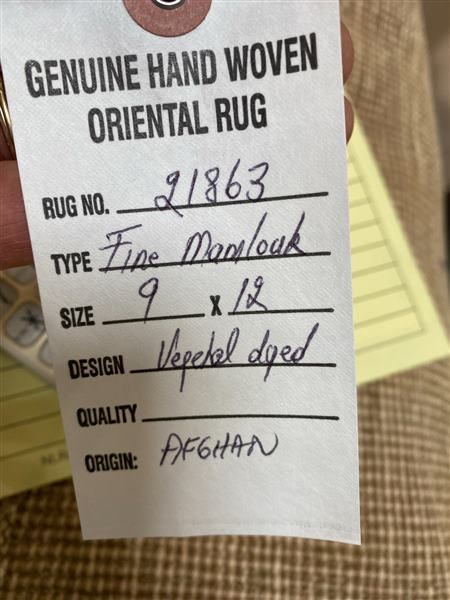 GENUINE HAND WOVEN
ORIENTAL RUG
RUG NO. 21863
TYPE Fine Mamlouk
SIZE 9 X 12
DESIGN Vegetal dyed
QUALITY
ORIGIN: AFGHAN